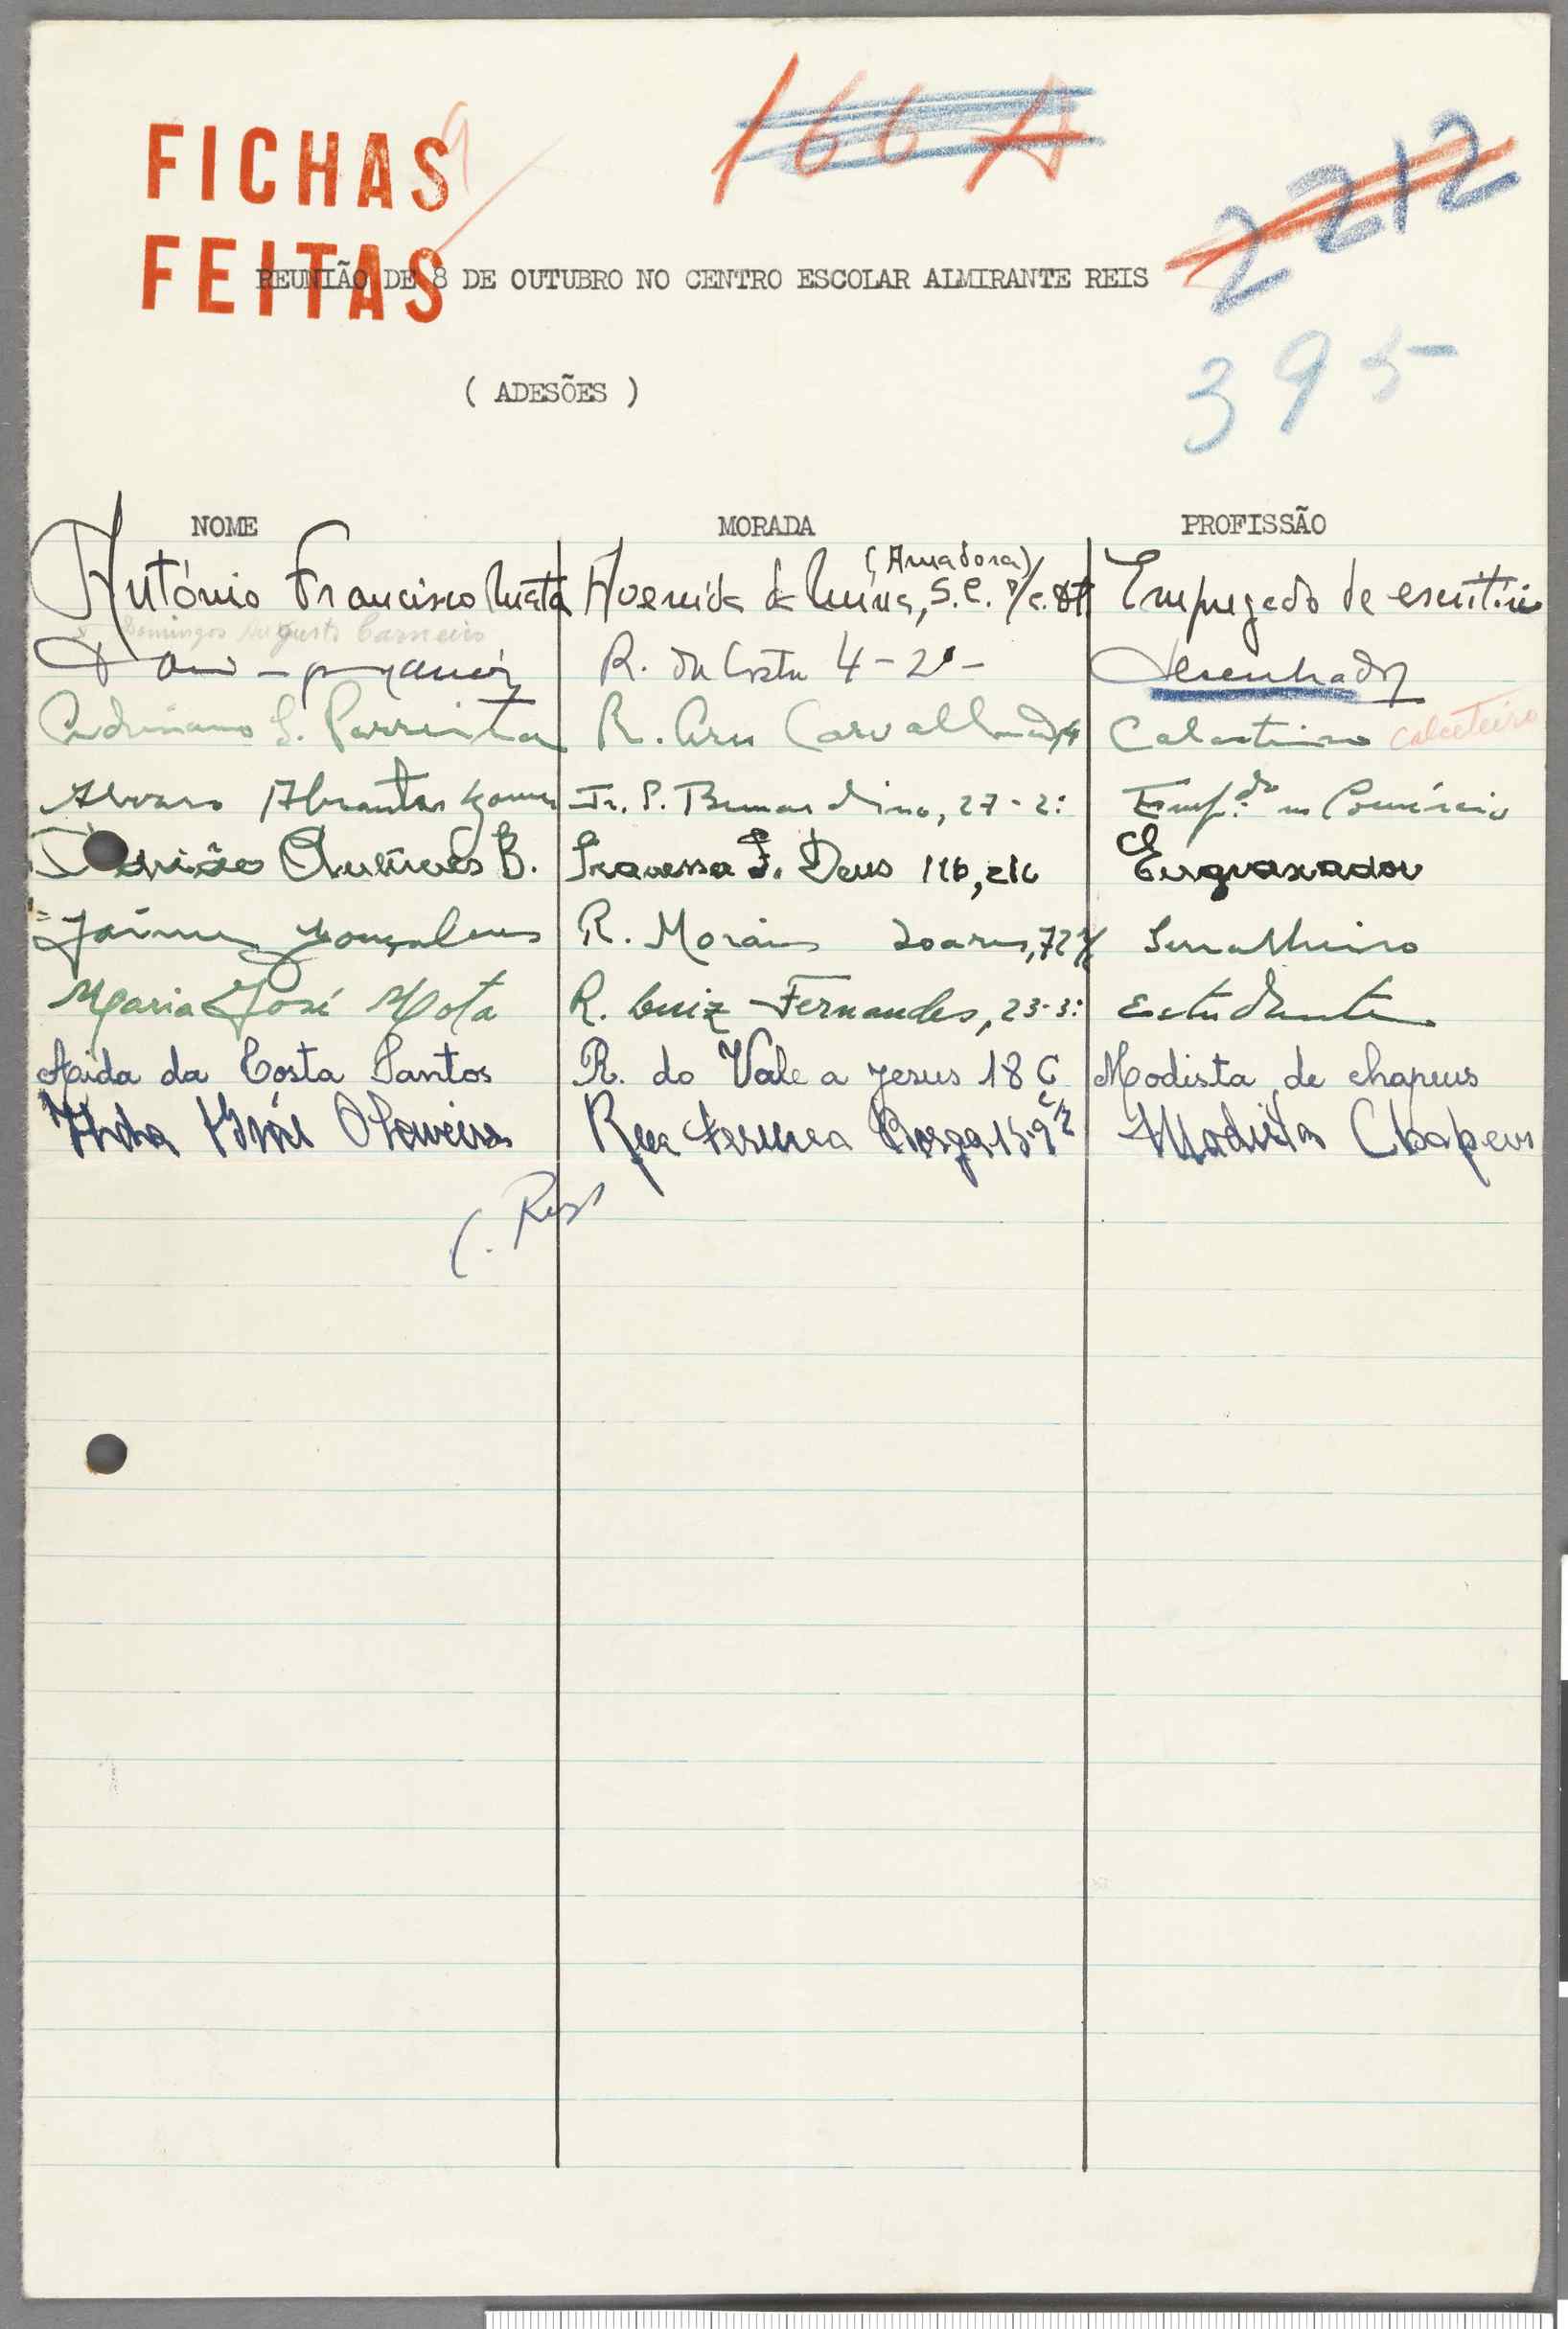 166 A
FICHAS 9
FEITAS
2212
REUNIÃO DE 8 DE OUTUBRO NO CENTRO ESCOLAR ALMIRANTE REIS
395
( ADESÕES )
NOME MORADA PROFISSÃO
(Amadora)
António Francisco Mata Avenida da Mina, S.C. r/c. Dtº Empregado de escritório
Domingos Augusto Carneiro
R. da Costa 4-2º- desenhador
Adriano S. Parreira R. Carvalho Calceteiro calceteiro
Alvaro Abrantes Gomes Tr. S. Bernardino, 27-2: Emp.do no Comércio
Antunes B. Travessa F. Deus 116, Engraxador
Jaime Gonçalves R. Morais Soares, 72 Serralheiro
Maria José Mota R. Luiz Fernandes, 23-3: Estudante
Aida da Costa Santos R. do Vale a Jesus 18 C Modista de chapeus
Oliveira Rua Modista Chapeus